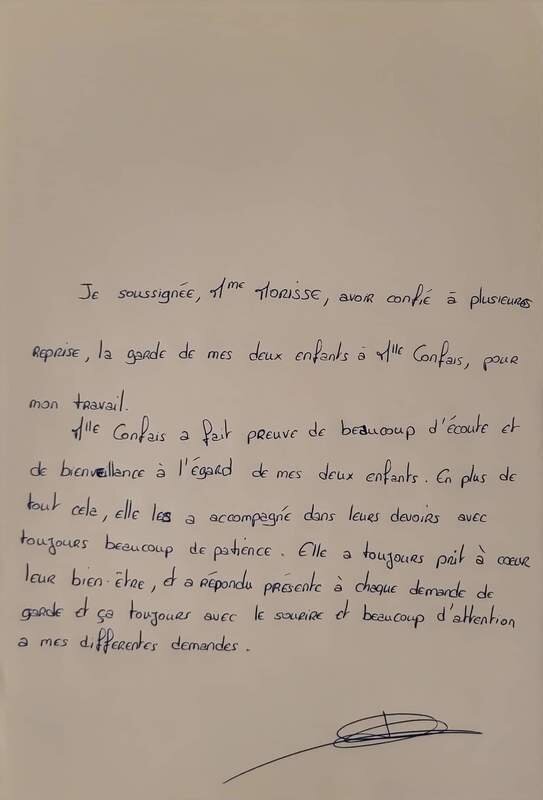 Je soussignée, Mme Morisse, avoir confié à plusieures
reprise, la garde de mes deux enfants à Mlle Confais, pour
mon travail.
Mlle Confais a fait preuve de beaucoup d'écoute et
de bienveillance à l'égard de mes deux enfants. En plus de
tout cela, elle les a accompagné dans leurs devoirs avec
toujours beaucoup de patience. Elle a toujours prit à coeur
leur bien-être, et a répondu présente à chaque demande de
garde et ça toujours avec le sourire et beaucoup d'attention
a mes differentes demandes.